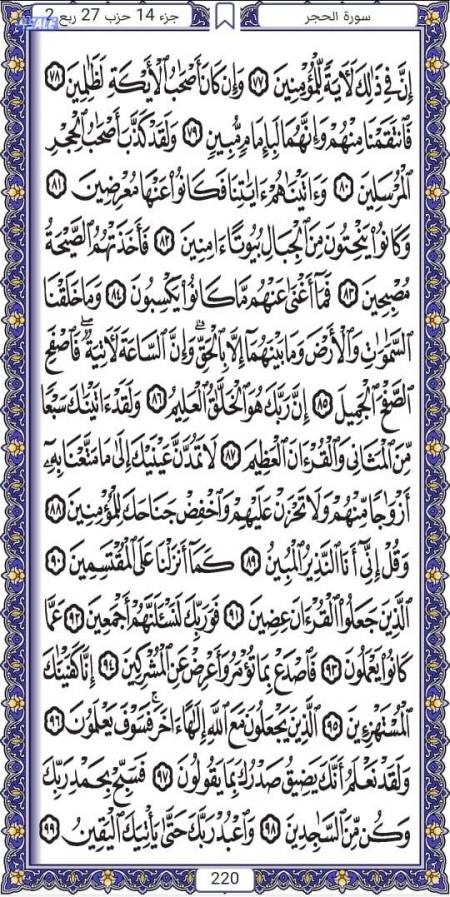 سورة الحجر
جزء 14 حزب 27 ربع 2
SALE
إِنَّ فِي ذَٰلِكَ لَآيَةً لِّلْمُؤْمِنِينَ ٧٧ وَإِن كَانَ أَصْحَٰبُ ٱلْأَيْكَةِ لَظَٰلِمِينَ ٧٨
فَٱنتَقَمْنَا مِنْهُمْ وَإِنَّهُمَا لَبِإِمَامٍ مُّبِينٍ ٧٩ وَلَقَدْ كَذَّبَ أَصْحَٰبُ ٱلْحِجْرِ
ٱلْمُرْسَلِينَ ٨٠ وَءَاتَيْنَٰهُمْ ءَايَٰتِنَا فَكَانُوا۟ عَنْهَا مُعْرِضِينَ ٨١
وَكَانُوا۟ يَنْحِتُونَ مِنَ ٱلْجِبَالِ بُيُوتًا ءَامِنِينَ ٨٢ فَأَخَذَتْهُمُ ٱلصَّيْحَةُ
مُصْبِحِينَ ٨٣ فَمَآ أَغْنَىٰ عَنْهُم مَّا كَانُوا۟ يَكْسِبُونَ ٨٤ وَمَا خَلَقْنَا
ٱلسَّمَٰوَٰتِ وَٱلْأَرْضَ وَمَا بَيْنَهُمَآ إِلَّا بِٱلْحَقِّ ۗ وَإِنَّ ٱلسَّاعَةَ لَءَاتِيَةٌ ۖ فَٱصْفَحِ
ٱلصَّفْحَ ٱلْجَمِيلَ ٨٥ إِنَّ رَبَّكَ هُوَ ٱلْخَلَّٰقُ ٱلْعَلِيمُ ٨٦ وَلَقَدْ ءَاتَيْنَٰكَ سَبْعًا
مِّنَ ٱلْمَثَانِى وَٱلْقُرْءَانَ ٱلْعَظِيمَ ٨٧ لَا تَمُدَّنَّ عَيْنَيْكَ إِلَىٰ مَا مَتَّعْنَا بِهِۦٓ
أَزْوَٰجًا مِّنْهُمْ وَلَا تَحْزَنْ عَلَيْهِمْ وَٱخْفِضْ جَنَاحَكَ لِلْمُؤْمِنِينَ ٨٨
وَقُلْ إِنِّىٓ أَنَا ٱلنَّذِيرُ ٱلْمُبِينُ ٨٩ كَمَآ أَنزَلْنَا عَلَى ٱلْمُقْتَسِمِينَ ٩٠
ٱلَّذِينَ جَعَلُوا۟ ٱلْقُرْءَانَ عِضِينَ ٩١ فَوَرَبِّكَ لَنَسْـَٔلَنَّهُمْ أَجْمَعِينَ ٩٢ عَمَّا
كَانُوا۟ يَعْمَلُونَ ٩٣ فَٱصْدَعْ بِمَا تُؤْمَرُ وَأَعْرِضْ عَنِ ٱلْمُشْرِكِينَ ٩٤ إِنَّا كَفَيْنَٰكَ
ٱلْمُسْتَهْزِءِينَ ٩٥ ٱلَّذِينَ يَجْعَلُونَ مَعَ ٱللَّهِ إِلَٰهًا ءَاخَرَ ۚ فَسَوْفَ يَعْلَمُونَ ٩٦
وَلَقَدْ نَعْلَمُ أَنَّكَ يَضِيقُ صَدْرُكَ بِمَا يَقُولُونَ ٩٧ فَسَبِّحْ بِحَمْدِ رَبِّكَ
وَكُن مِّنَ ٱلسَّٰجِدِينَ ٩٨ وَٱعْبُدْ رَبَّكَ حَتَّىٰ يَأْتِيَكَ ٱلْيَقِينُ ٩٩
220